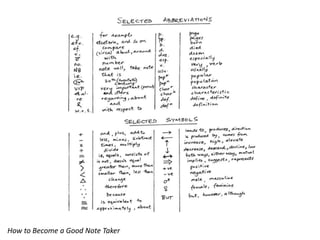 SELECTED ABBREVIATIONS
e.g. for example
etc. etcetera, and so on
cf. compare
(circa) about, around
with
no. number
NB note well, take note
i.e. that is
both (…)
VIP very important (person)
et al. and others
re regarding, about
& and
w.r.t. with respect to
p. page
pp. pages
b. born
d. died
doz. dozen
esp. especially
v. very, verb
usually
"pop" popular
"pop" population
character
characteristic
def define, definite
definition
SELECTED SYMBOLS
+ and, plus, add to
- less, minus,
x times, multiply
÷ divide
= is, equals, consists of
≠ is not, doesn't equal
> greater than, more than
< smaller than, less than
△ change
∴ therefore
∵ because
is equivalent to
approximately, about
→ leads to, produces, direction
← is produced by, comes from
↑ increase, high, elevate
↓ decrease, descend, decline, low
↔ both ways, either way, mutual
⇒ implies, suggests, represents
+ve positive
-ve negative
♂ male, masculine
♀ female, feminine
BUT but, however, although
How to Become a Good Note Taker